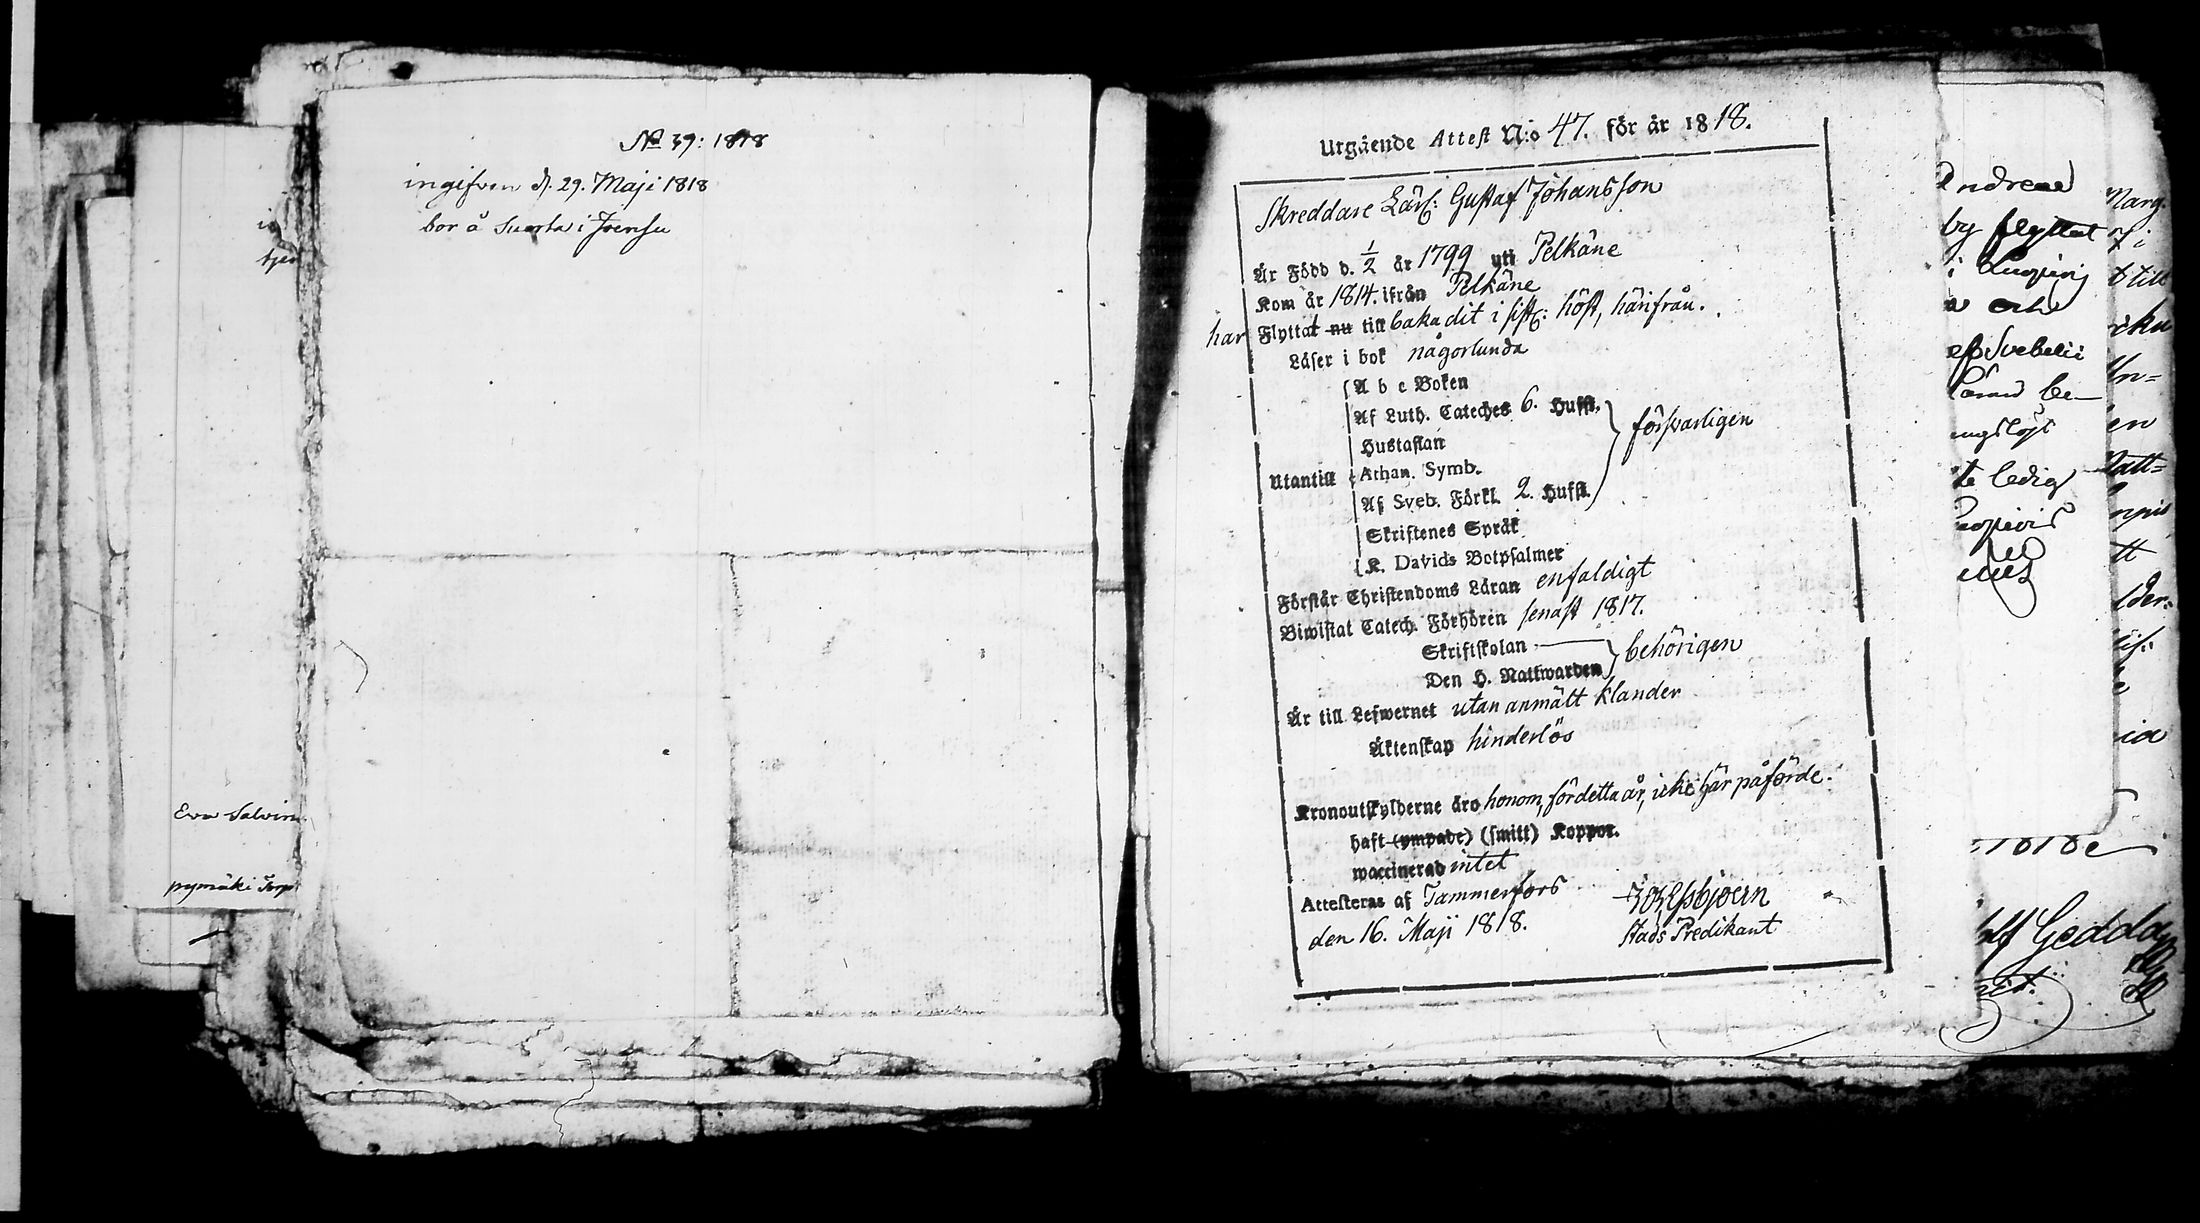 No 39: 1818
ingifven d. 29. Maji 1818
bor å Suorta i Joensu
Eva Salvin
pymäki Torp
Utgående Attest N:o 47. för år 1818.
Skreddare Lärl: Gustaf Johansson
Är Född d. 1/2 år 1799 uti Pelkäne
Kom år 1814. ifrån Pelkäne
har Flyttat nu till baka dit i sistl: höst, härifrån.
Läser i bok någorlunda
A b c Boken
Af Luth. Cateches 6. Hufst.
försvarligen
Hustaflan
Utantill Athan. Symb.
Af Sveb. Förkl. 2. Hufst.
Skriftenes Språk
K. Davids Botpsalmer
Förstår Christendoms Läran enfaldigt
Biwistat Catech. Förhören senast 1817.
Skriftskolan
behörigen
Den H. Nattwarden
Är till Lefwernet utan anmält klander
Äktenskap hinderlös
Kronoutskylderne äro honom, för detta år, icke här påförde.
haft (ympade) (smitt) Koppor.
waccinerad intet
Attesteras af Tammerfors
den 16. Maji 1818.
Stads Predikant
Andreae
by flyttat
i
och
Svebelii
te ledig
Marg
i
t till
en
tt
1818
Gedda